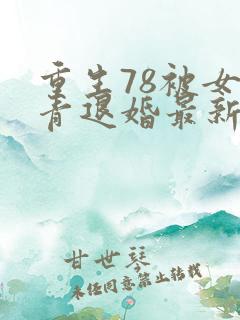 重生78被女
青退婚最新
甘世琴
未经同意禁止转载